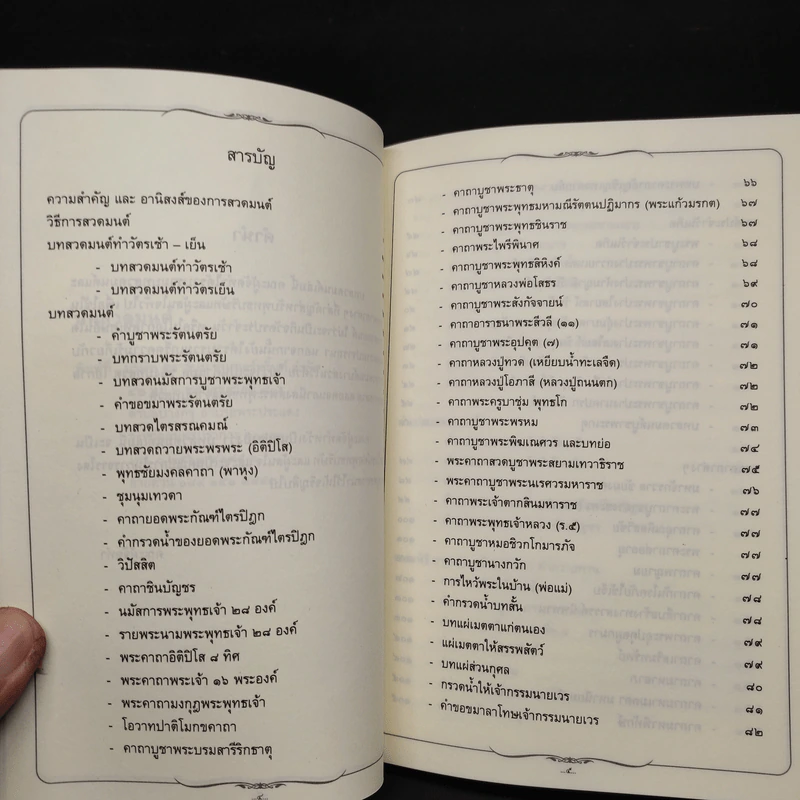 สารบัญ
ความสำคัญ และ อานิสงส์ของการสวดมนต์
วิธีการสวดมนต์
บทสวดมนต์ทำวัตรเช้า – เย็น
- บทสวดมนต์ทำวัตรเช้า
- บทสวดมนต์ทำวัตรเย็น
บทสวดมนต์
- คำบูชาพระรัตนตรัย
- บทกราบพระรัตนตรัย
- บทสวดนมัสการบูชาพระพุทธเจ้า
- คำขอขมาพระรัตนตรัย
- บทสวดไตรสรณคมณ์
- บทสวดถวายพระพรพระ (อิติปิโส)
- พุทธชัยมงคลคาถา (พาหุง)
- ชุมนุมเทวดา
- คาถายอดพระกัณฑ์ไตรปิฎก
- คำกรวดน้ำของยอดพระกัณฑ์ไตรปิฎก
- วิปัสสิต
- คาถาชินบัญชร
- นมัสการพระพุทธเจ้า ๒๘ องค์
- รายพระนามพระพุทธเจ้า ๒๘ องค์
- พระคาถาอิติปิโส ๘ ทิศ
- พระคาถาพระเจ้า ๑๖ พระองค์
- พระคาถามงกุฎพระพุทธเจ้า
- โอวาทปาติโมกขคาถา
- คาถาบูชาพระบรมสารีริกธาตุ
- คาถาบูชาพระธาตุ ๖๖
- คาถาบูชาพระพุทธมหามณีรัตตนปฏิมากร (พระแก้วมรกต) ๖๗
- คาถาบูชาพระพุทธชินราช ๖๗
- คาถาพระไพรีพินาศ ๖๘
- คาถาบูชาพระพุทธสิหิงค์ ๖๘
- คาถาบูชาหลวงพ่อโสธร ๖๙
- คาถาบูชาพระสังกัจจายน์ ๗๐
- คาถาอาราธนาพระสีวลี (๑๑) ๗๑
- คาถาบูชาพระอุปคุต (๗) ๗๑
- คาถาหลวงปู่ทวด (เหยียบน้ำทะเลจืด) ๗๒
- คาถาหลวงปู่โอภาสี (หลวงปู่ถนนตก) ๗๒
- คาถาพระครูบาชุ่ม พุทธโก ๗๒
- คาถาบูชาพระพรหม ๗๓
- คาถาบูชาพระพิฆเณศวร และบทย่อ ๗๔
- พระคาถาสวดบูชาพระสยามเทวาธิราช ๗๕
- พระคาถาบูชาพระนเรศวรมหาราช ๗๖
- คาถาพระเจ้าตากสินมหาราช ๗๗
- คาถาพระพุทธเจ้าหลวง (ร.๕) ๗๗
- คาถาบูชาหมอชิวกโกมารภัจ ๗๗
- คาถาบูชานางกวัก ๗๗
- การไหว้พระในบ้าน (พ่อแม่) ๗๘
- คำกรวดน้ำบทสั้น ๗๘
- บทแผ่เมตตาแก่ตนเอง ๗๙
- แผ่เมตตาให้สรรพสัตว์ ๗๙
- บทแผ่ส่วนกุศล ๘๐
- กรวดน้ำให้เจ้ากรรมนายเวร ๘๑
- คำขอขมาลาโทษเจ้ากรรมนายเวร ๘๒